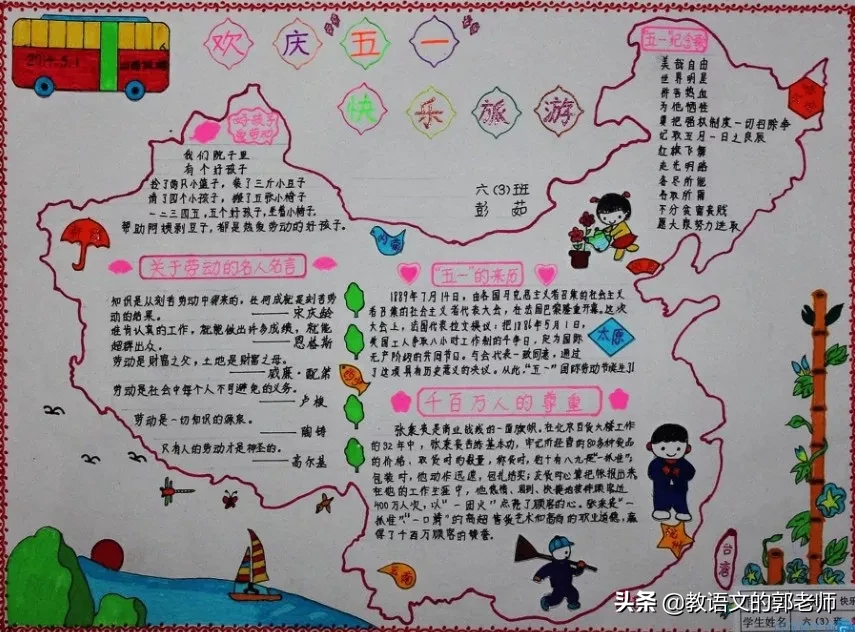 2014.5.1
欢庆五一
快乐旅游
六(3)班
彭茹
"五一"纪念歌
美哉自由
世界明星
拼吾热血
为他牺牲
要把强权制度一切扫除净
记取五月一日之良辰
红旗飞舞
走光明路
各尽所能
各取所需
不分贫富贵贱
愿大家努力进取
我们院子里
有个好孩子
拾了两只小篮子，装了三斤小豆子
请了四个小孩子，搬了五张小椅子
一二三四五，五个好孩子，坐着小椅子
帮助阿姨剥豆子，都是热爱劳动的好孩子。
关于劳动的名人名言
知识是从刻苦劳动中得来的，任何成就是刻苦劳
动的结果。
——宋庆龄
谁肯认真的工作，就能做出许多成绩，就能
超群出众。
——恩格斯
劳动是财富之父，土地是财富之母。
——威廉·配第
劳动是社会中每个人不可避免的义务。
——卢梭
劳动是一切知识的源泉。
——陶铸
只有人的劳动才是神圣的。
——高尔基
"五一"的来历
1889年7月14日，由各国马克思主义者召集的社会主义
者代表大会，在法国巴黎隆重开幕。这次
大会上，法国代表拉文提议：把1886年5月1日，
美国工人争取八小时工作制的斗争日，定为国际
无产阶级的共同节日。与会代表一致同意，通过
了这项具有历史意义的决议。从此，"五一"国际劳动节诞生了!
太原
千百万人的尊重
张秉贵是商业战线的一面旗帜。在北京百货大楼工作
的32年中，张秉贵苦练基本功，牢记所经营的80多种食品
的价格、
包装时，他动作迅速，包扎结实；
在他的工作生涯中，他热情、周到、
400万人次，以"一团火"点亮了顾客的心。张秉贵"一
抓准"、"一口清"的高超售货艺术和高尚的职业道德，赢
得了千百万顾客的赞誉。
台湾
学生姓名 六(3)班
头条 @教语文的郭老师